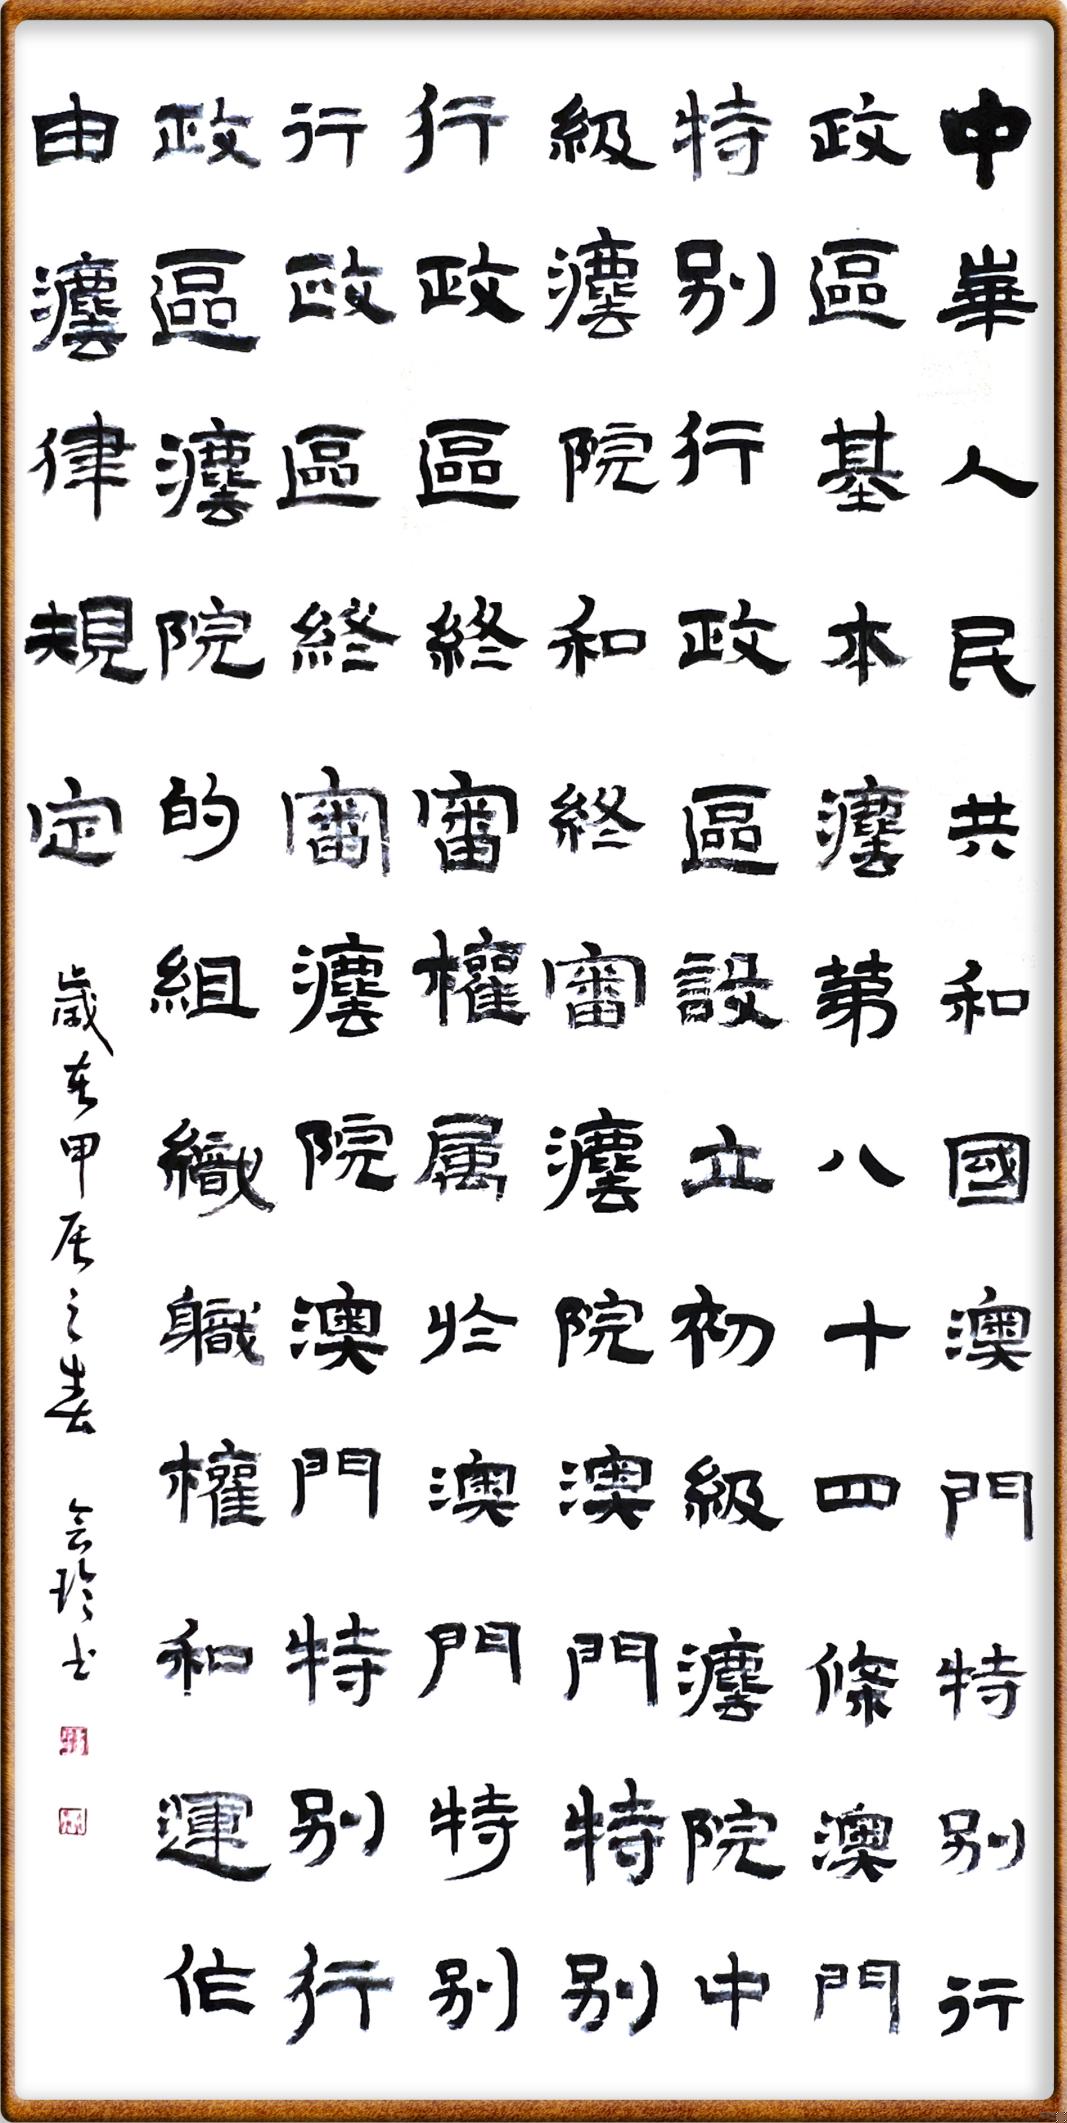 中華人民共和國澳門特別行
政區基本灋第八十四條澳門
特別行政區設立初級灋院中
級灋院和終審灋院澳門特別
行政區終審權属於澳門特別
行政區終審灋院澳門特別行
政區灋院的組織職權和運作
由灋律規定
歲在甲辰之春 会玲书